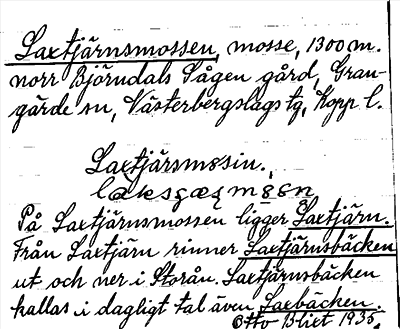 Laxtjärnsmossen, mosse, 1300 m.
norr Björndals Sågen gård, Gran-
gärde sn, Västerbergslags tg, Kopp l.
Laxtjärsmosin.,
På Laxtjärnsmossen ligger Laxtjärn.
Från Laxtjärn rinner Laxtjärnsbäcken
ut och ner i Storån. Laxtjärnsbäcken
kallas i dagligt tal även Laxbäcken.
Otto Blixt 1935.